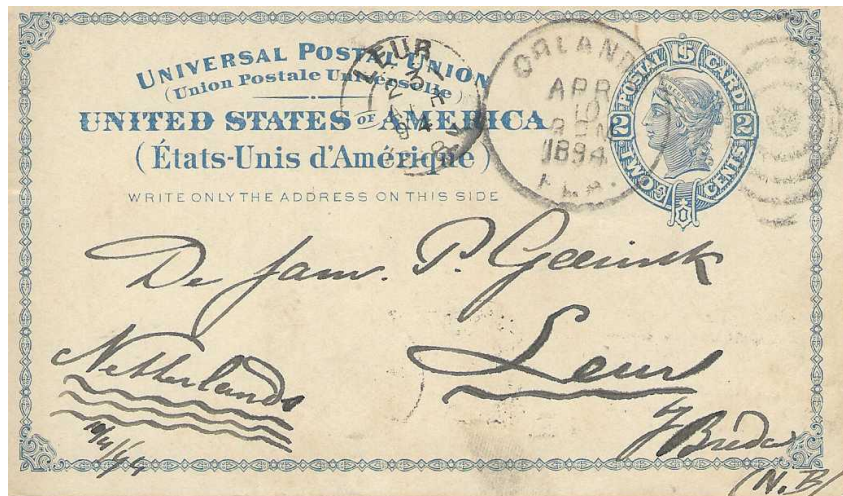 UNIVERSAL POSTAL UNION
(Union Postale Universelle)
UNITED STATES OF AMERICA
(États-Unis d'Amérique)
WRITE ONLY THE ADDRESS ON THIS SIDE
ORLAN
APR
10
1894
FLA.
POSTAL CARD
2 2
TWO CENTS
LEUR
De fam. P. Geerinck
Netherlands
Leur
Breda
(N.B)